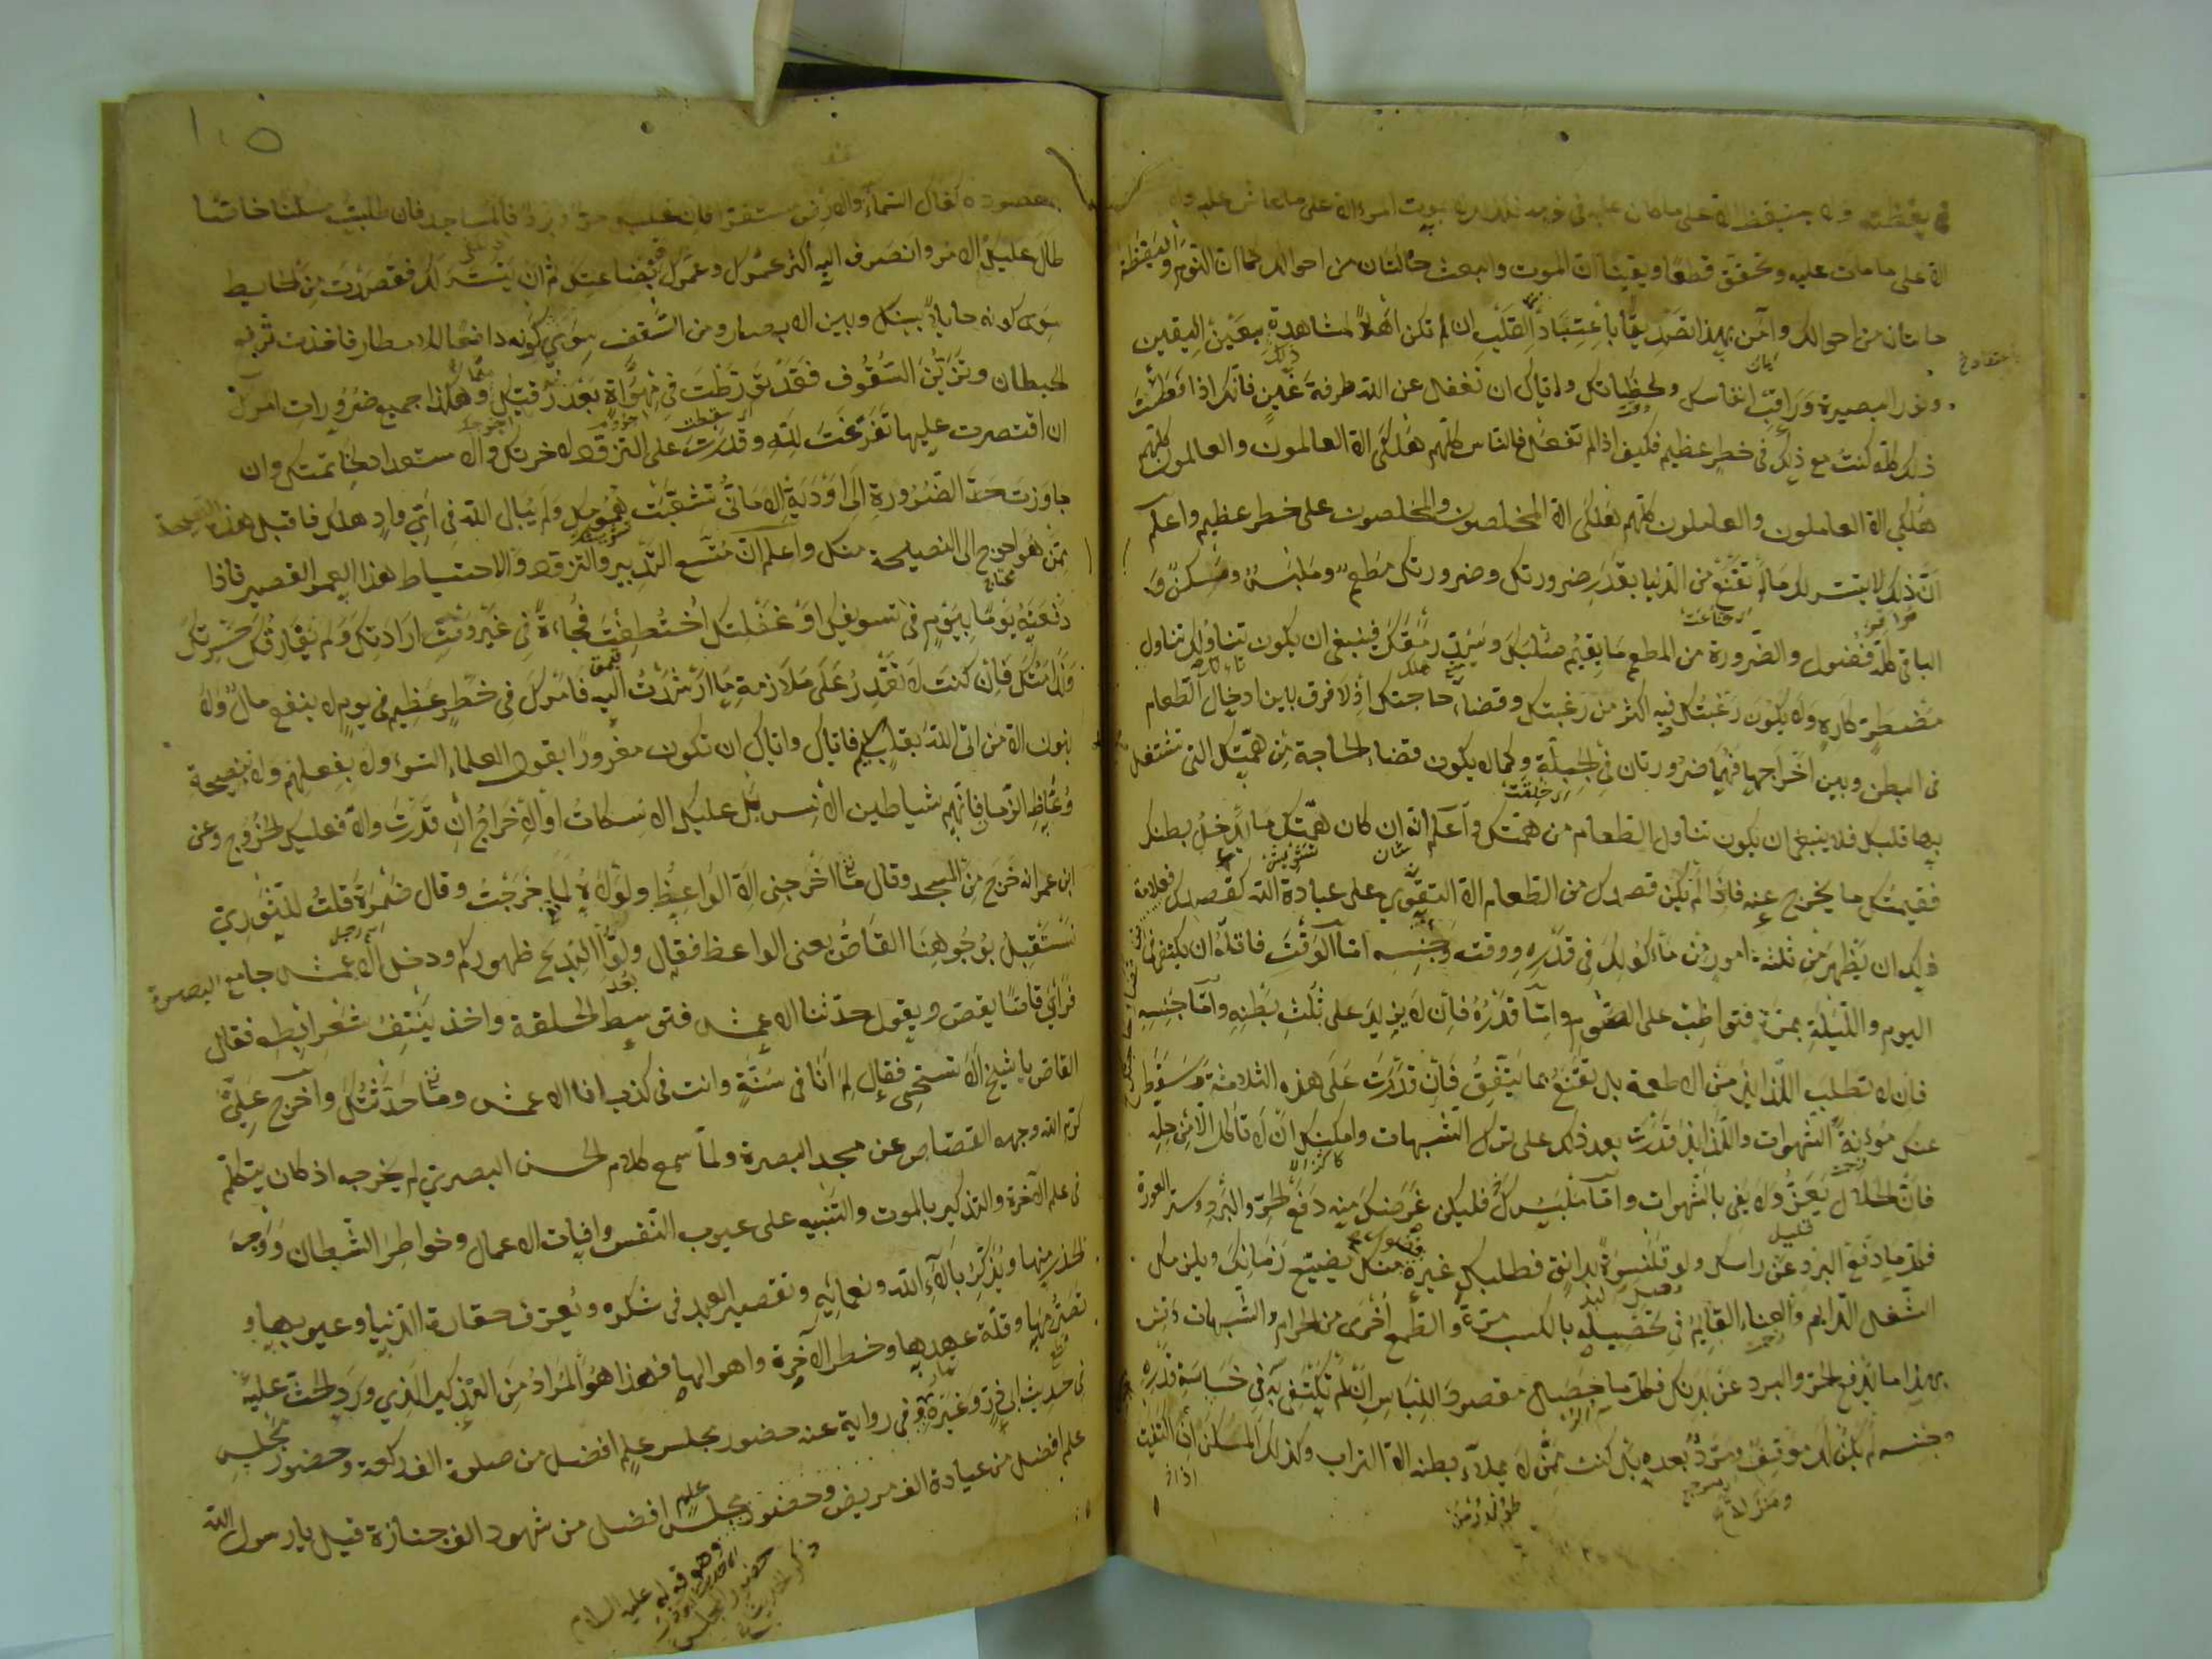 في يقظته ولا يستيقظ الا على ما كان عليه في نومه فكذلك لا يموت المرء الا على ما عاش عليه ولا
الا على ما مات عليه وتحقق قطعا ويقينا ان الموت والبعث حالتان من احوالك كما ان النوم واليقظة
حالتان من احوالك وآمن بهذا تصديقا باعتقاد القلب ان لم تكن اهلا لمشاهدة ذلك بعين اليقين
ونور البصيرة وراقب انفاسك ولحظاتك واياك ان تغفل عن الله طرفة عين فانك اذا فعلت
ذلك كله كنت مع ذلك في خطر عظيم فكيف اذا لم تفعل فالناس كلهم هلكى الا العالمون والعالمون كلهم
هلكى الا العاملون والعاملون كلهم هلكى الا المخلصون والمخلصون على خطر عظيم واعلم
ان ذلك لا يتيسر لك ما لم تقنع من الدنيا بقدر ضرورتك وضرورتك مطعم وملبس ومسكن و
الباقي كله فضول والضرورة من المطعم ما يقيم صلبك وسد رمقك فينبغي ان يكون تناولك تناول
مضطر كاره ولا يكون رغبتك فيه اكثر من رغبتك وقضاء حاجتك اذ لا فرق بين ادخال الطعام
في البطن وبين اخراجها فهما ضرورتان في الجبلة وكما لا يكون قضاء الحاجة من همتك التي تشتغل
بها قلبك فلا ينبغي ان يكون تناول الطعام من همتك واعلم انه ان كان همتك ما يدخل بطنك
فقيمتك ما يخرج عنه فاذا لم يكن قصدك من الطعام الا التقوي على عبادة الله كقصدك فعلامة
ذلك ان يظهر من ثلثة امور من مأكولك في قدره ووقته وجنسه اما الوقت فاقله ان يكتفى في
اليوم والليلة بمرة فتواظب على الصوم واما قدره فان لا يزيد على ثلث بطنه واما جنسه
فان لا تطلب اللذائذ من الاطعمة بل تقنع بما يتفق فان قدرت على هذه الثلاثة وسقط
عنك مؤنة الشهوات واللذائذ قدرت بعد ذلك على ترك الشبهات وامكنك ان لا تأكل الا من حله
فان الحلال يعز ولا يفي بالشهوات واما ملبسك فليكن غرضك منه دفع الحر والبرد وستر العورة
فكل ما دفع البرد عن راسك ولو قلنسوة بدانق فطلبك غيره منك يضيع زمانك ويلزمك
الشغل الدائم والعناء القائم في تحصيله بالكسب مرة والطمع اخرى من الحرام والشبهات وقس
بهذا ما تدفع الحر والبرد عن بدنك فكل ما حصل مقصود اللباس ان لم تكتف به في خساسة قدره
وجنسه لم يكن لك موقف ومرد بعده بل كنت ممن لا يملأ بطنه الا التراب وكذلك المسكن ان اكتفيت
١٠٥
بمقصوده كفاك السماء والارض مستقرا فان غلبك حر وبرد فالمساجد فان طلبت مسكنا خاصا
طال عليك الامر وانصرف اليه اكثر عمرك وعمرك بضاعتك ثم ان يتيسر لك فقصدت من الحايط
سوى كونه حايلا بينك وبين الابصار ومن السقف سوى كونه دافعا للامطار فاخذت ترفع
الحيطان وتزين السقوف فقد تورطت في مهواة يبعد رقيك منها وهكذا جميع ضرورات امورك
ان اقتصرت عليها تفرغت لله وقدرت على التزود لاخرتك والاستعداد لخاتمتك وان
جاوزت حد الضرورة الى اودية الاماني تشعبت همومك ولم يبال الله في اي واد هلك فاقبل هذه النصيحة
ممن هو احوج الى النصيحة منك واعلم ان متسع التدبير والتزود والاحتياط هذا العمر القصير فاذا
دفعته يوما بيوم في تسويفك او غفلتك اختطفت فجاءة في غير وقت ارادتك ولم يفارقك حسرتك
وندامتك فان كنت لا تقدر على ملازمة ما ارشدت اليه فامرك في خطر عظيم في يوم لا ينفع مال ولا
بنون الا من اتى الله بقلب سليم فاياك واياك ان تكون مغرورا بقول العلماء السوء ولا بفعلهم ولا بنصيحة
وعاظ الزمان فانهم شياطين الانس بل عليك الاسكات او الاخراج ان قدرت والا فعليك الخروج وعن
ابن عمر انه خرج من المسجد وقال ما اخرجني الا الواعظ ولولاه لما خرجت وقال ضمرة قلت للثوري
نستقبل بوجوهنا القاص يعني الواعظ فقال ولوا البدع ظهوركم ودخل الاعمش جامع البصرة
فرأى قاصا يقص ويقول حدثنا الاعمش فتوسط الحلقة واخذ ينتف شعر ابطه فقال
القاص يا شيخ الا تستحي فقال لم انا في سنة وانت في كذب انا الاعمش وما حدثتك واخرج علي
كرم الله وجهه القصاص عن مسجد البصرة ولما سمع كلام الحسن البصري لم يخرجه اذ كان يتكلم
في علم الآخرة والتذكير بالموت والتنبيه على عيوب النفس وافات الاعمال وخواطر الشيطان ووجه
الحذر منها ويذكر بآلاء الله ونعمائه وتقصير العبد في شكره ويعرف حقارة الدنيا وعيوبها و
تصرمها وقلة عهدها وخطر الآخرة واهوالها فهذا هو المراد من التذكير الذي ورد الحث عليه
في حديث ابي ذر وغيره وفي رواية عنه حضور مجلس علم افضل من صلوة الف ركعة وحضور مجلس
علم افضل من عيادة الف مريض وحضور مجلس علم افضل من شهود الف جنازة قيل يا رسول الله
وهو قوله عليه السلام